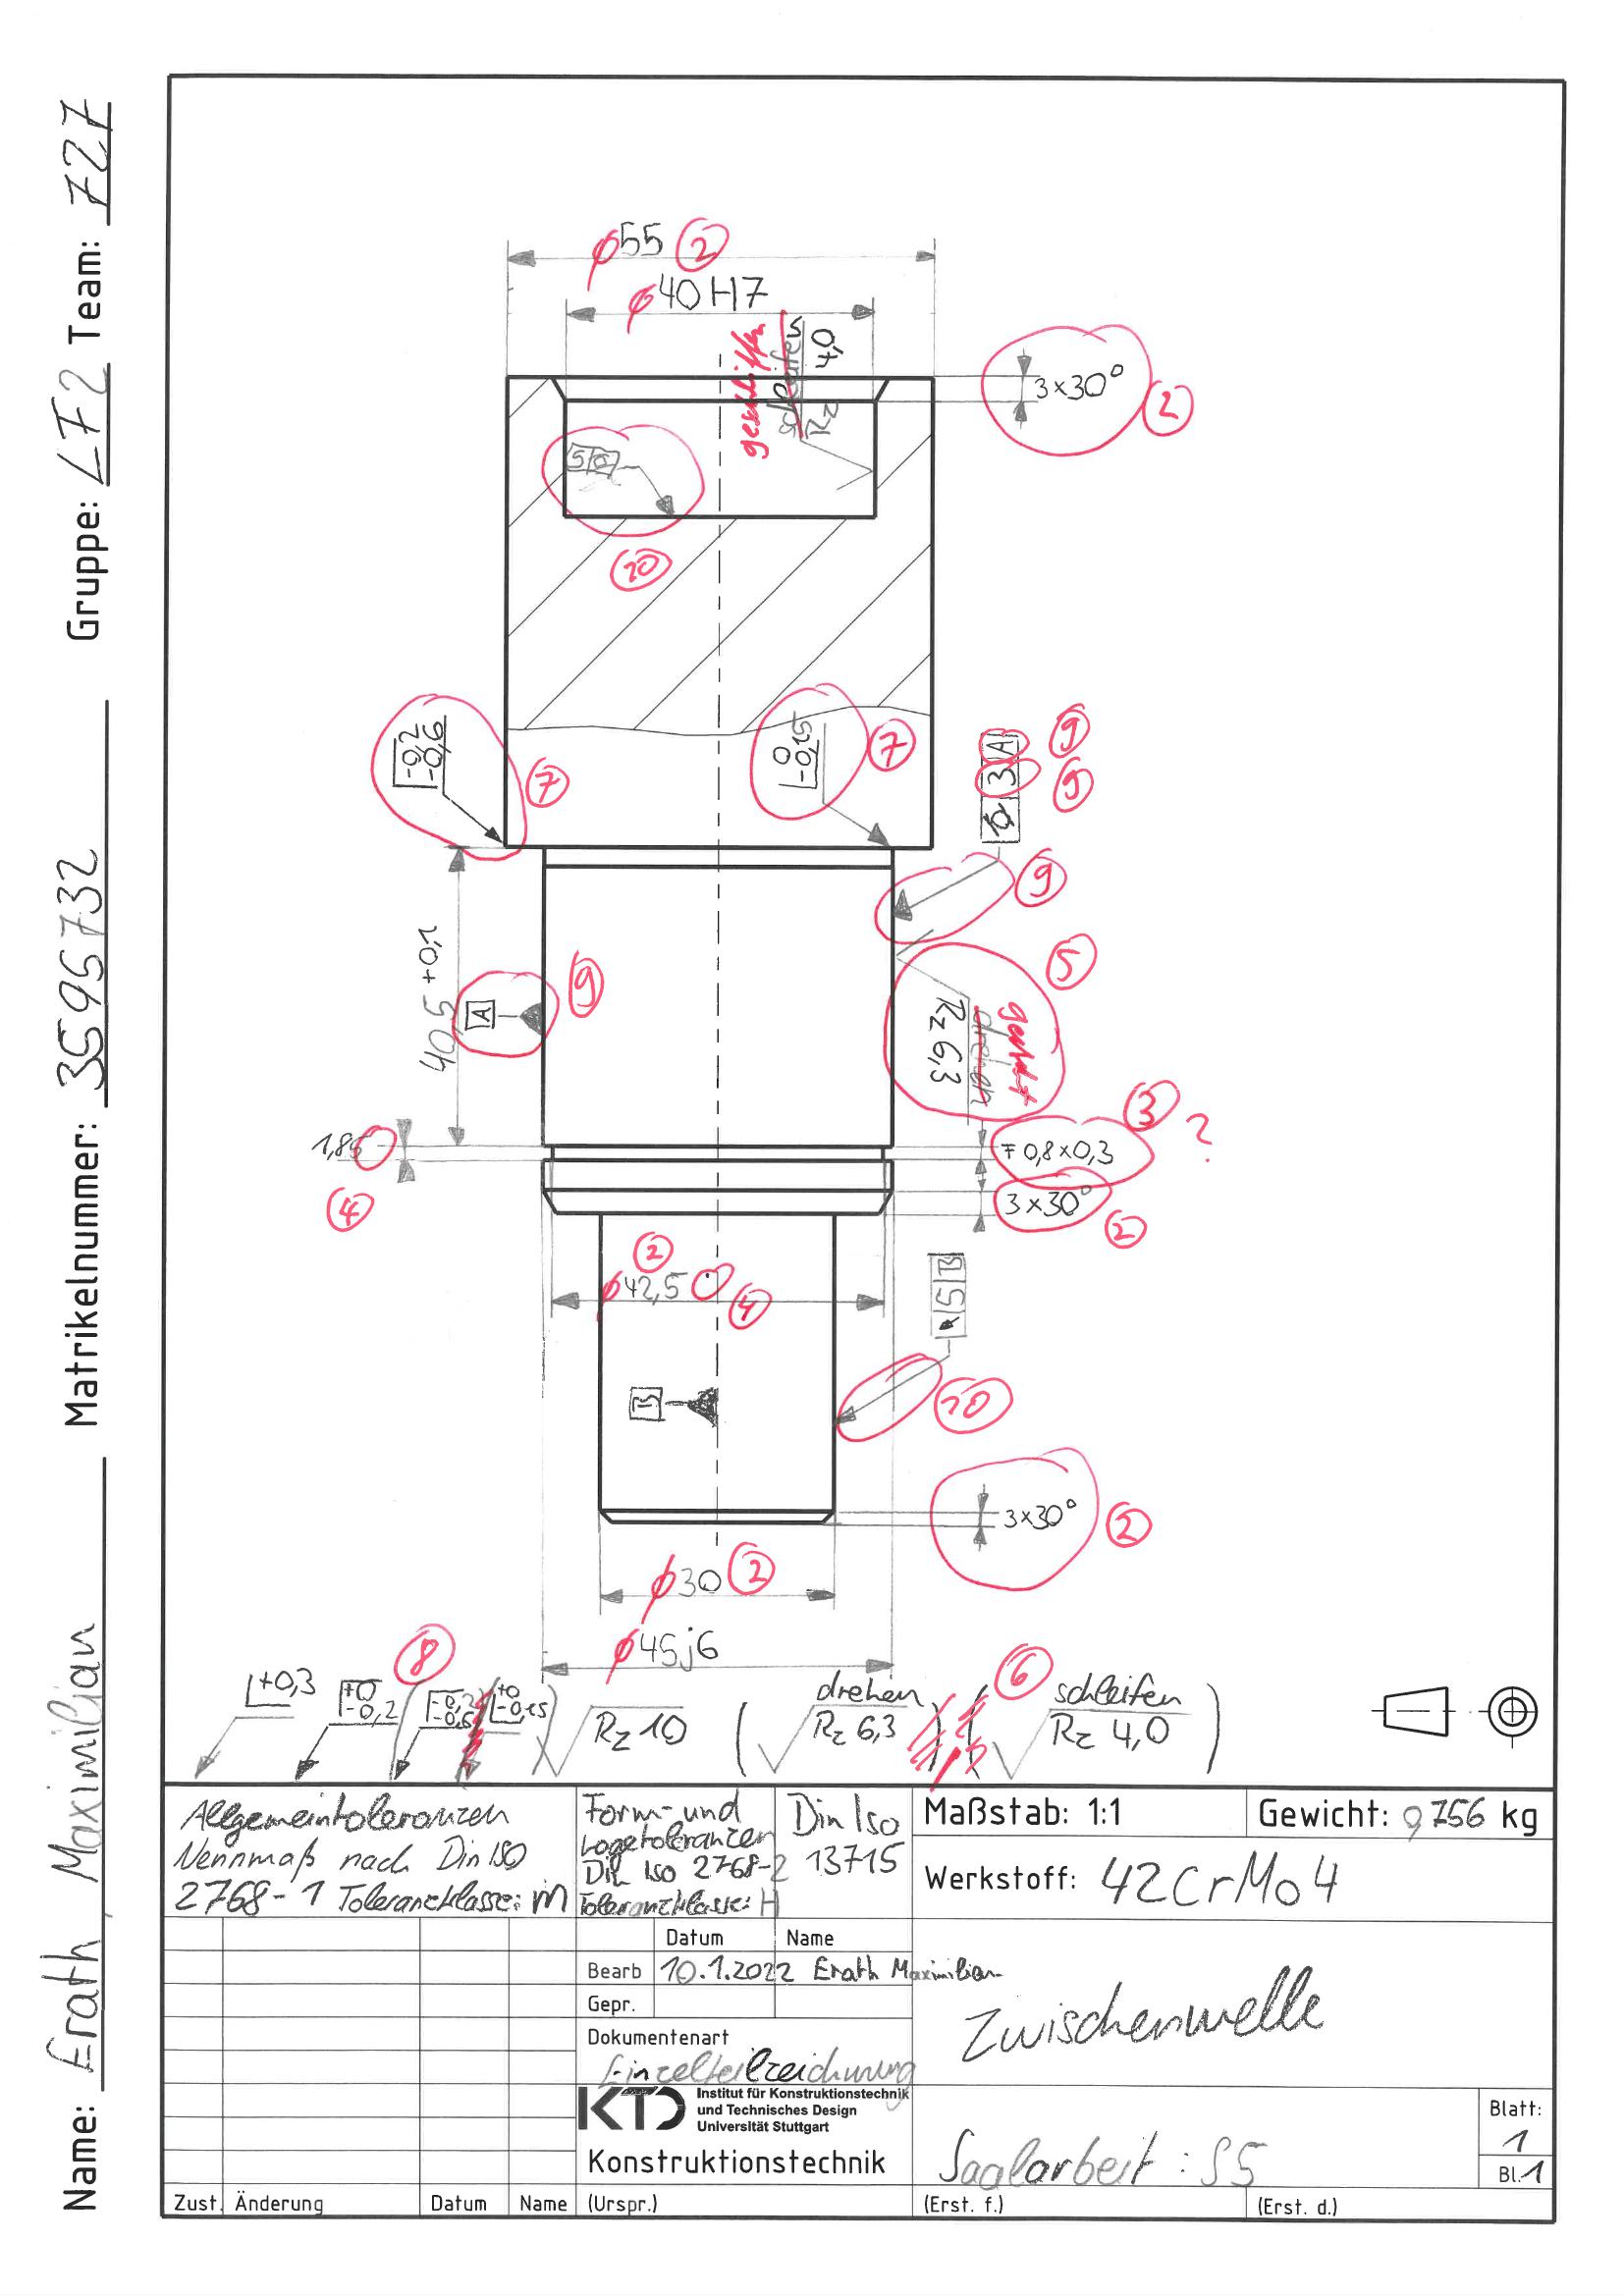 Name: Erath Maximilian Matrikelnummer: 3595732 Gruppe: LF2 Team: 727
⌀55 2
⌀40 H7
geschliffen
schleifen
Rz 4,0
3x30°
2
5
10
-0,2
-0,6
7
0
-0,15
7
3 A
9
9
9
40,5 +0,1
A
9
5
gedreht
drehen
Rz 6,3
1,85
4
0,8x0,3
3 ?
3x30°
2
2
⌀42,5
4
5 B
10
B
3x30°
2
⌀30 2
⌀45j6
8
+0,3
+0
-0,2
-0,2
-0,6
+0
-0,15
Rz 10
(
drehen
Rz 6,3
)
(
6
schleifen
Rz 4,0
)
Allgemeintoleranzen
Nennmaß nach Din ISO
2768-1 Toleranzklasse: m
Form- und
Lagetoleranzen
Din Iso 2768-2
Toleranzklasse: H
Din Iso
13715
Maßstab: 1:1
Gewicht: 0,756 kg
Werkstoff: 42CrMo4
Datum Name
Bearb 10.1.2022 Erath Maximilian
Gepr.
Dokumentenart
Einzelteilzeichnung
Zwischenwelle
KTD
Institut für Konstruktionstechnik
und Technisches Design
Universität Stuttgart
Konstruktionstechnik
Saalarbeit: S5
Blatt:
1
Bl.1
Zust. Änderung Datum Name (Urspr.) (Erst. f.) (Erst. d.)